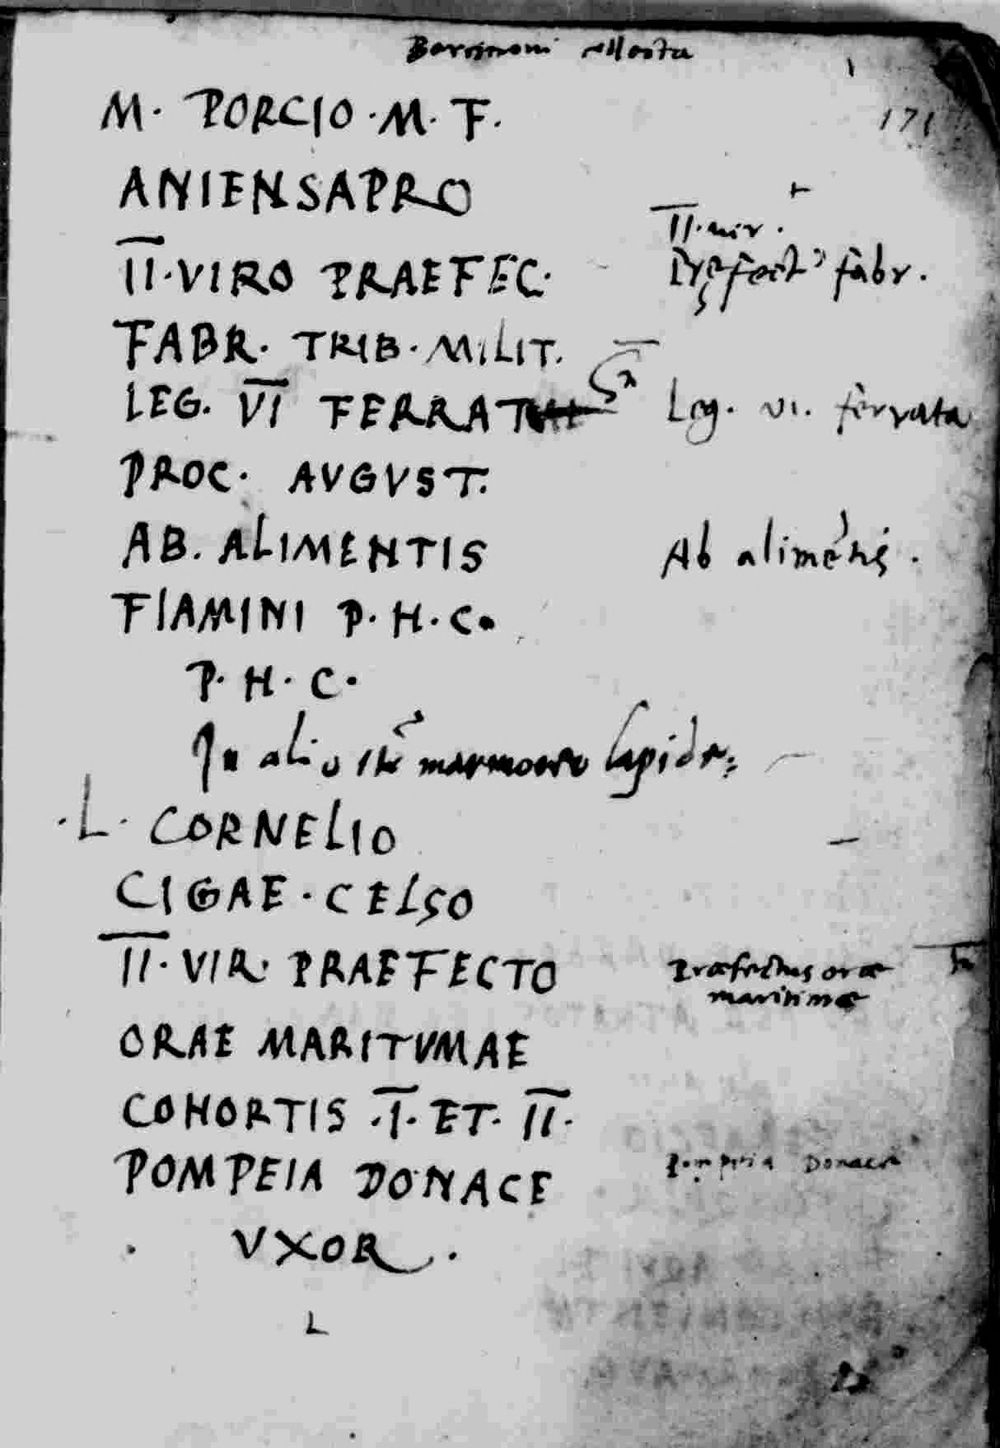 171
M. PORCIO . M. F.
ANIENSAPRO
II. vir .
II . VIRO PRAEFEC .
Pręfect' fabr .
FABR . TRIB . MILIT .
LEG . VI FERRAT
Leg . vi . ferrata
PROC . AVGVST .
AB . ALIMENTIS
Ab alimētis .
FlAMINI P. H. C.
P. H. C.
In alio marmoreo lapide
. L . CORNELIO
CIGAE . CELSO
II . VIR . PRAEFECTO
Præfectus oræ
maritimæ
ORAE MARITVMAE
COHORTIS . I . ET . II .
POMPEIA DONACE
Pompeia Donace
. VXOR .
L